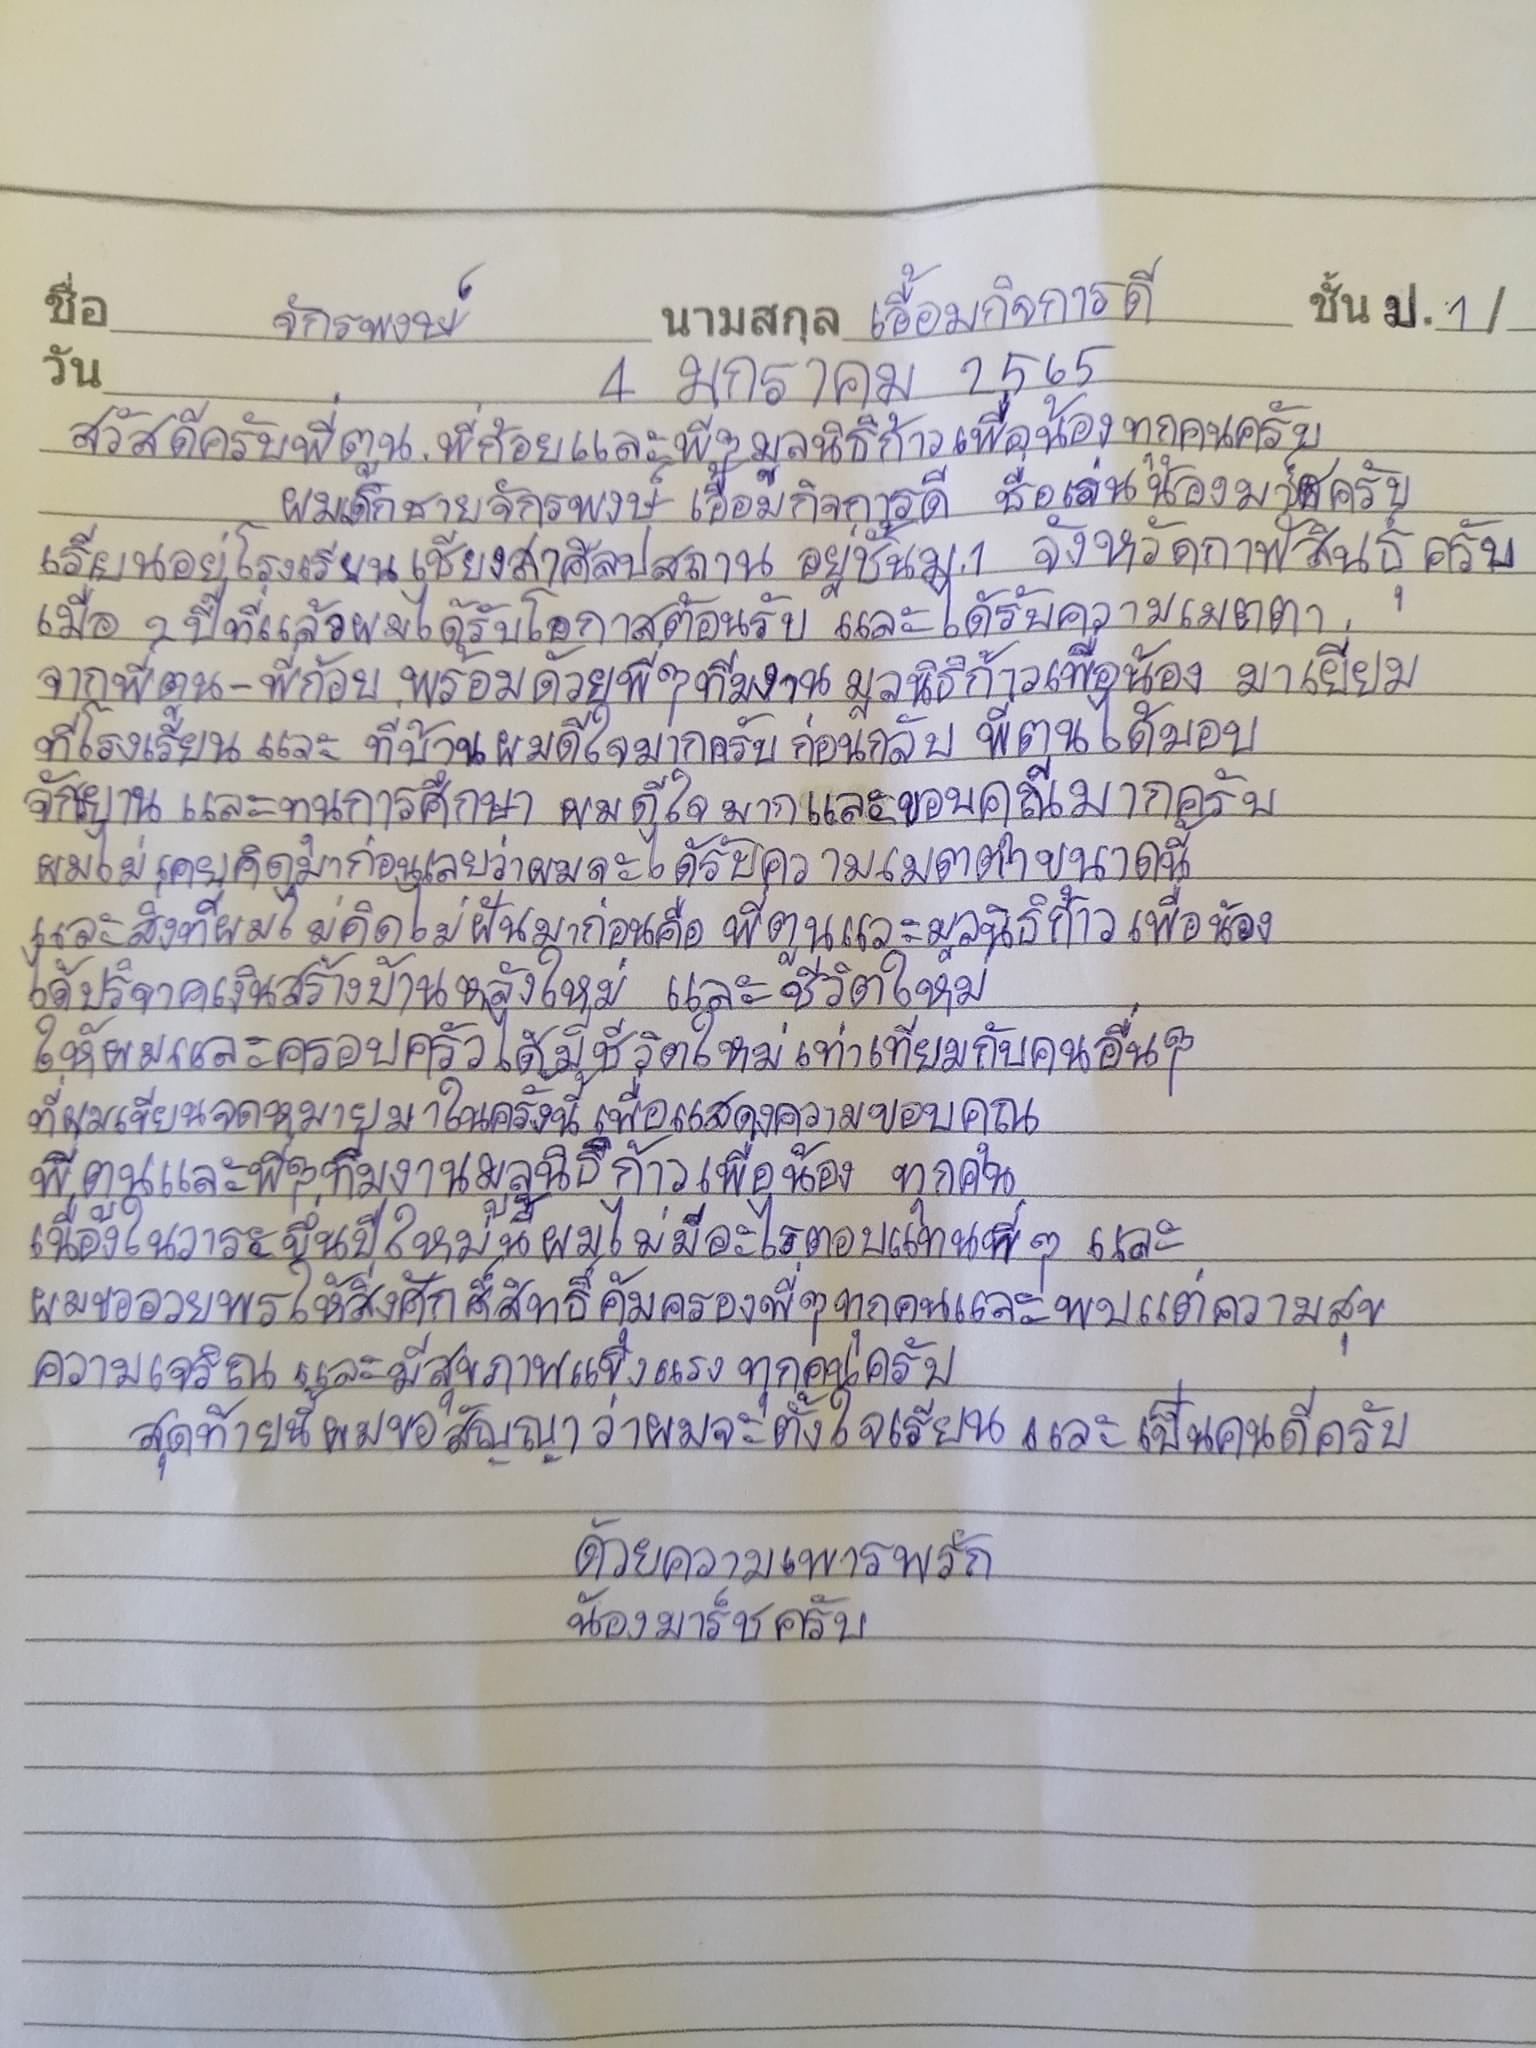 ชื่อ จักรพงษ์ นามสกุล เอื้อมกิจการดี ชั้น ป. 1/
วัน 4 มกราคม 2565
สวัสดีครับพี่ตูน. พี่ก้อยและพี่ๆมูลนิธิก้าวเพื่อน้องทุกคนครับ
ผมเด็กชายจักรพงษ์ เอื้อมกิจการดี ชื่อเล่นน้องมาร์ชครับ
เรียนอยู่โรงเรียนเชียงสาศิลปสถาน อยู่ชั้นม.1 จังหวัดกาฬสินธุ์ ครับ
เมื่อ 2 ปีที่แล้วผมได้รับโอกาสต้อนรับ และได้รับความเมตตา
จากพี่ตูน-พี่ก้อย พร้อมด้วยพี่ๆทีมงาน มูลนิธิก้าวเพื่อน้อง มาเยี่ยม
ที่โรงเรียน และ ที่บ้านผมดีใจมากครับ ก่อนกลับ พี่ตูนได้มอบ
จักยาน และทุนการศึกษา ผมดีใจมากและขอบคุณมากครับ
ผมไม่เคยคิดมาก่อนเลยว่าผมจะได้รับความเมตตาขนาดนี้
และสิ่งที่ผมไม่คิดไม่ฝันมาก่อนคือ พี่ตูนและมูลนิธิก้าวเพื่อน้อง
ได้บริจาคเงินสร้างบ้านหลังใหม่ และชีวิตใหม่
ให้ผมและครอบครัวได้มีชีวิตใหม่เท่าเทียมกับคนอื่นๆ
ที่ผมเขียนจดหมายมาในครั้งนี้ เพื่อแสดงความขอบคุณ
พี่ตูนและพี่ๆทีมงานมูลนิธิก้าวเพื่อน้อง ทุกคน
เนื่องในวาระขึ้นปีใหม่นี้ผมไม่มีอะไรตอบแทนพี่ๆ และ
ผมขออวยพรให้สิ่งศักดิ์สิทธิ์คุ้มครองพี่ๆทุกคนและพบแต่ความสุข
ความเจริญ และมีสุขภาพแข็งแรง ทุกคนครับ
สุดท้ายนี้ผมขอสัญญาว่าผมจะตั้งใจเรียน และเป็นคนดีครับ
ด้วยความเพารพรัก
น้องมาร์ชครับ